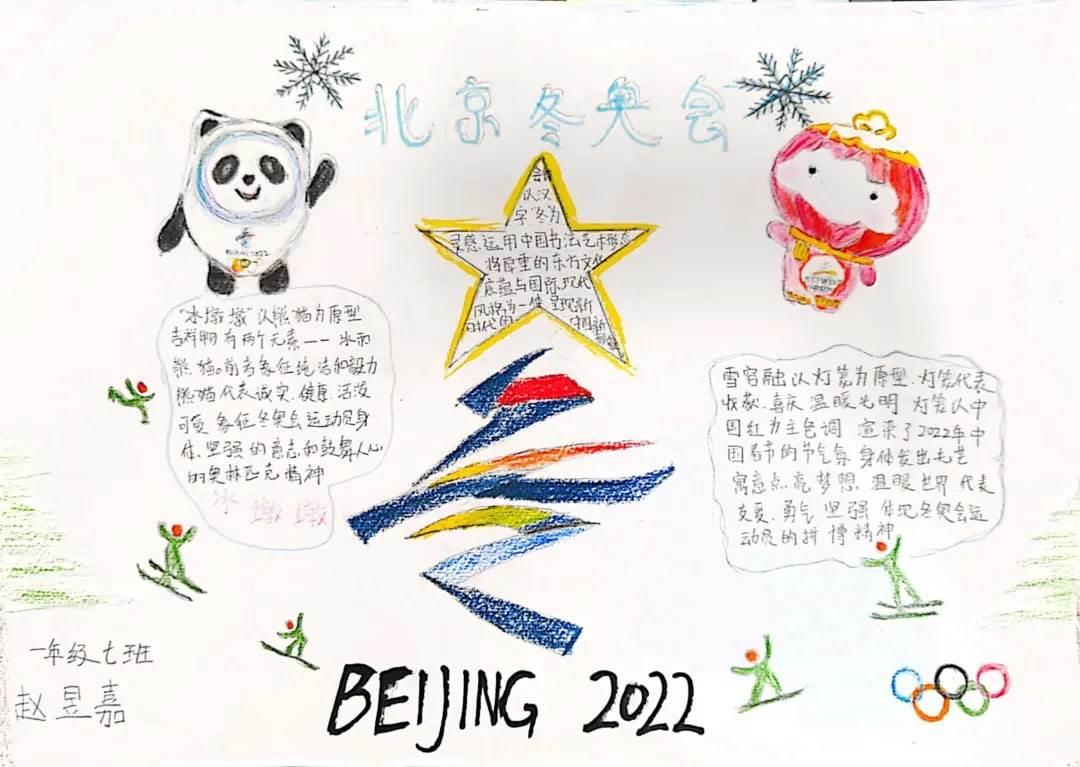 北京冬奥会
会徽
以汉
字"冬"为
灵感运用中国书法艺术形态
将厚重的东方文化
底蕴与国际现代
风格为一体呈现新
时代的中国新
BEIJING 2022
"冰墩墩"以熊猫为原型
吉祥物有两个元素——冰和
熊猫。前者象征纯洁和毅力
熊猫代表诚实、健康、活泼
可爱、象征冬奥会运动员身
体、坚强的意志和鼓舞人心
的奥林匹克精神
冰墩墩
雪容融以灯笼为原型.灯笼代表
收获.喜庆温暖光明 灯笼以中
国红为主色调 渲染了2022年中
国春节的节气氛 身体发出光芒
寓意点亮梦想.温暖世界 代表
友爱.勇气 坚强 体现冬奥会运
动员的拼博精神
一年级七班
赵昱嘉
BEIJING 2022